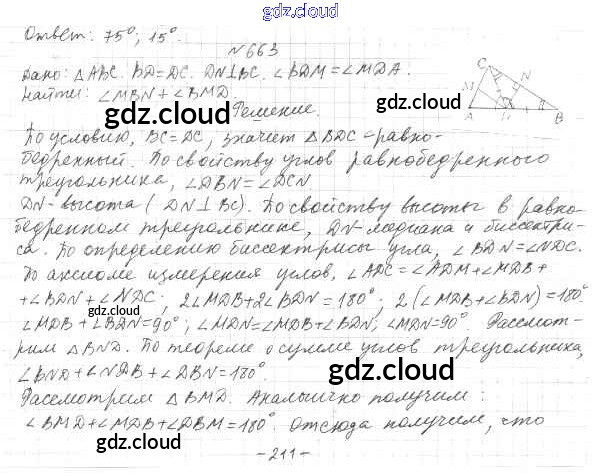 gdz.cloud
Ответ: 75°; 15°.
N 663
Дано: △ABC. BD=DC. DN⊥BC. ∠BDM=∠MDA.
Найти: ∠MBN+∠BMD.
gdz.cloud
Решение.
C
M
N
A
D
B
По условию, BC=DC, значит △BDC-равно-
бедренный. По свойству углов равнобедренного
треугольника, ∠DBN=∠DCN
DN-высота (DN⊥BC). По свойству высоты в равно-
бедренном треугольнике, DN-медиана и биссектри-
са. По определению биссектрисы угла, ∠BDN=∠NDC.
По аксиоме измерения углов, ∠ADC=∠ADM+∠MDB+
+∠BDN+∠NDC; 2∠MDB+2∠BDN=180°; 2(∠MDB+∠BDN)=180°
∠MDB+∠BDN=90°; ∠MDN=∠MDB+∠BDN; ∠MDN=90°. Рассмот-
рим △BND. По теореме о сумме углов треугольника,
∠BND+∠NDB+∠DBN=180°.
gdz.cloud
gdz.cloud
Рассмотрим △BMD. Аналогично получим:
∠BMD+∠MDB+∠DBM=180°. Отсюда получим, что
gdz.cloud
-211-
gdz.cloud